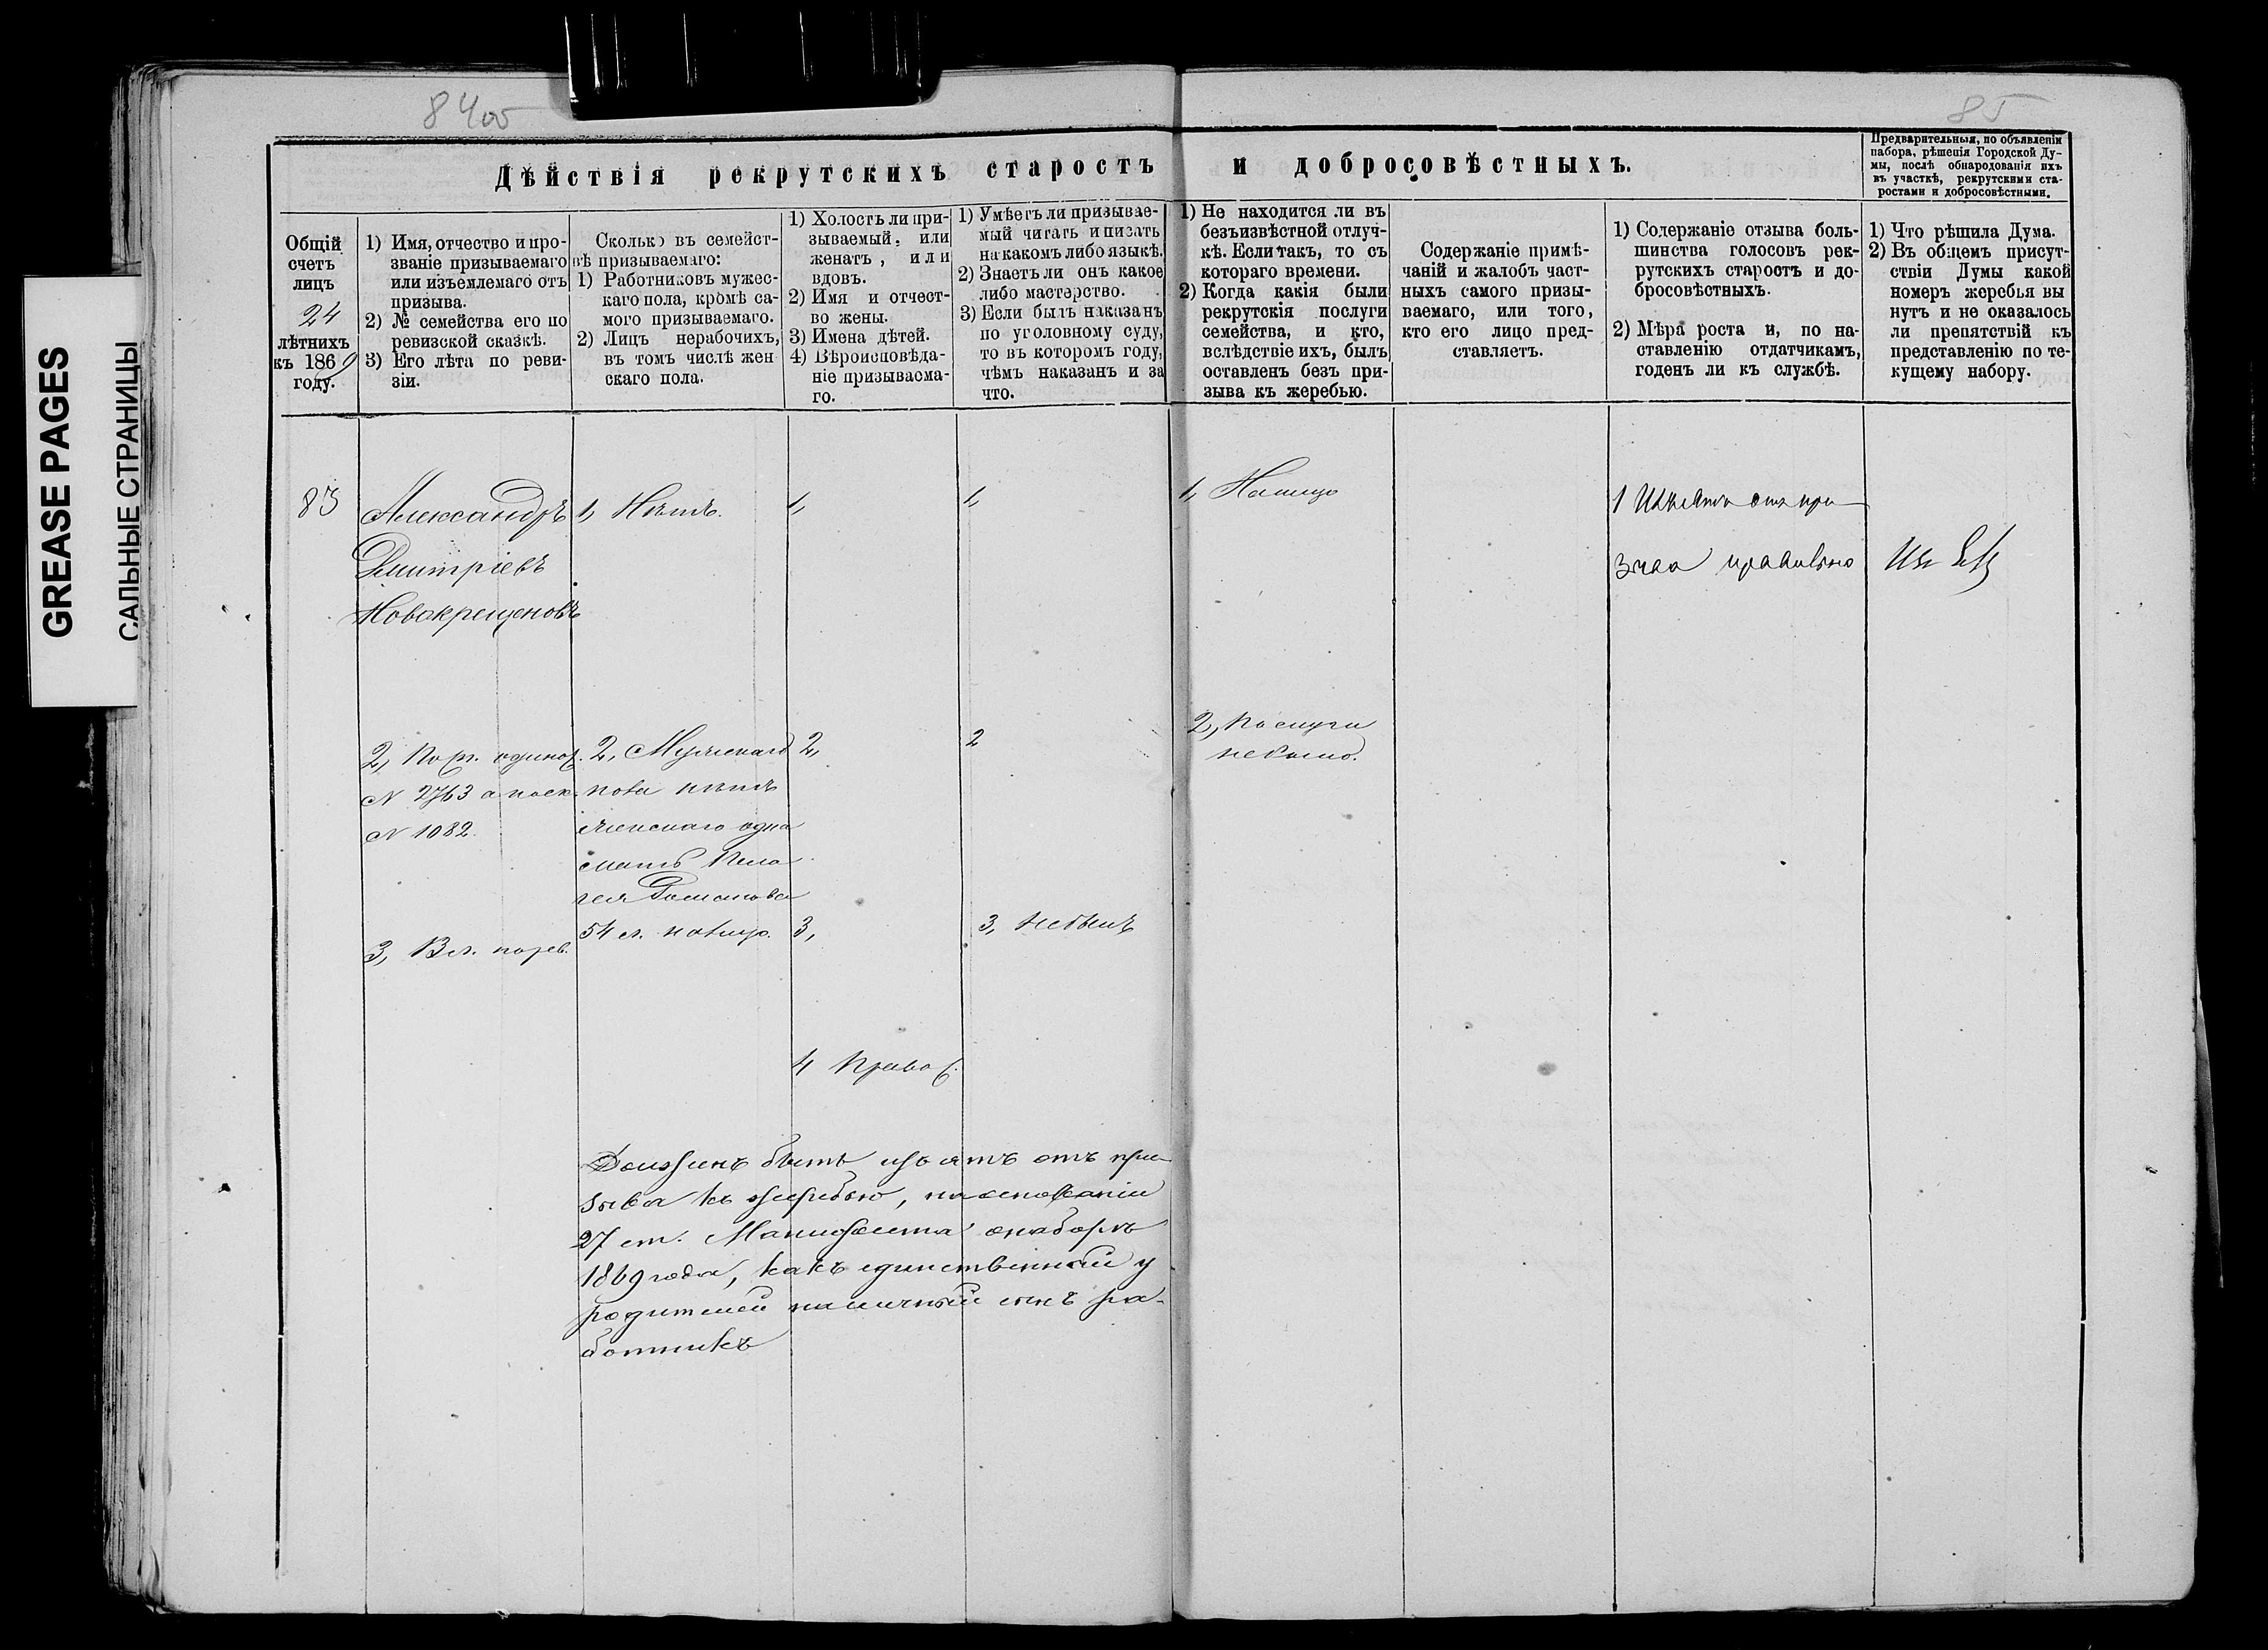 84об
85
GREASE PAGES
САЛЬНЫЕ СТРАНИЦЫ
Дѣйствія рекрутскихъ старостъ и добросовѣстныхъ.
Предварительныя, по объявленіи
набора, рѣшенія Городской Ду-
мы, послѣ обнародованія ихъ
въ участкѣ, рекрутскими ста-
ростами и добросовѣстными.
Общій
счетъ
лицъ
24
лѣтнихъ
къ 1869
году.
1) Имя, отчество и про-
званіе призываемаго
или изъемлемаго отъ
призыва.
2) № семейства его по
ревизской сказкѣ.
3) Его лѣта по реви-
зіи.
Сколько въ семейст-
вѣ призываемаго:
1) Работниковъ мужес-
каго пола, кромѣ са-
мого призываемаго.
2) Лицъ нерабочихъ,
въ томъ числѣ жен
скаго пола.
1) Холостъ ли при-
зываемый, или
женатъ, или
вдовъ.
2) Имя и отчест-
во жены.
3) Имена дѣтей.
4) Вѣроисповѣда-
ніе призываема-
го.
1) Умѣетъ ли призывае-
мый читать и писать
на какомъ либо языкѣ.
2) Знаетъ ли онъ какое
либо мастерство.
3) Если былъ наказанъ
по уголовному суду,
то въ которомъ году,
чѣмъ наказанъ и за
что.
1) Не находится ли въ
безъизвѣстной отлуч-
кѣ. Если такъ, то съ
котораго времени.
2) Когда какія были
рекрутскія послуги
семейства, и кто,
вслѣдствіе ихъ, былъ
оставленъ безъ при-
зыва къ жеребью.
Содержаніе примѣ-
чаній и жалобъ част-
ныхъ самого призы-
ваемаго, или того,
кто его лицо пред-
ставляетъ.
1) Содержаніе отзыва боль-
шинства голосовъ рек-
рутскихъ старостъ и до-
бросовѣстныхъ.
2) Мѣра роста и, по на-
ставленію отдатчикамъ,
годенъ ли къ службѣ.
1) Что рѣшила Дума.
2) Въ общемъ присут-
ствіи Думы какой
номеръ жеребья вы
нутъ и не оказалось
ли препятствій къ
представленію по те-
кущему набору.
83
Александръ
Дмитріевъ
Новокрещеновъ
2, по
N 2763 а
N 1082.
3, 3 л. по рев.
1, Нѣтъ.
2, Мужскаго
пола нѣтъ
женскаго одна
мать Пела
гея Романова
54 л. налицо.
1,
2,
3,
4 Правос.
1,
2
3, не былъ
1, Налицо
2, послуги
не было.
1 Изъять отъ при
зыва правильно
Долженъ быть изъятъ отъ при-
зыва къ жеребью, на основаніи
27 ст. Манифеста о наборѣ
1869 года, какъ единственный у
родителей наличный сынъ ра-
ботникъ